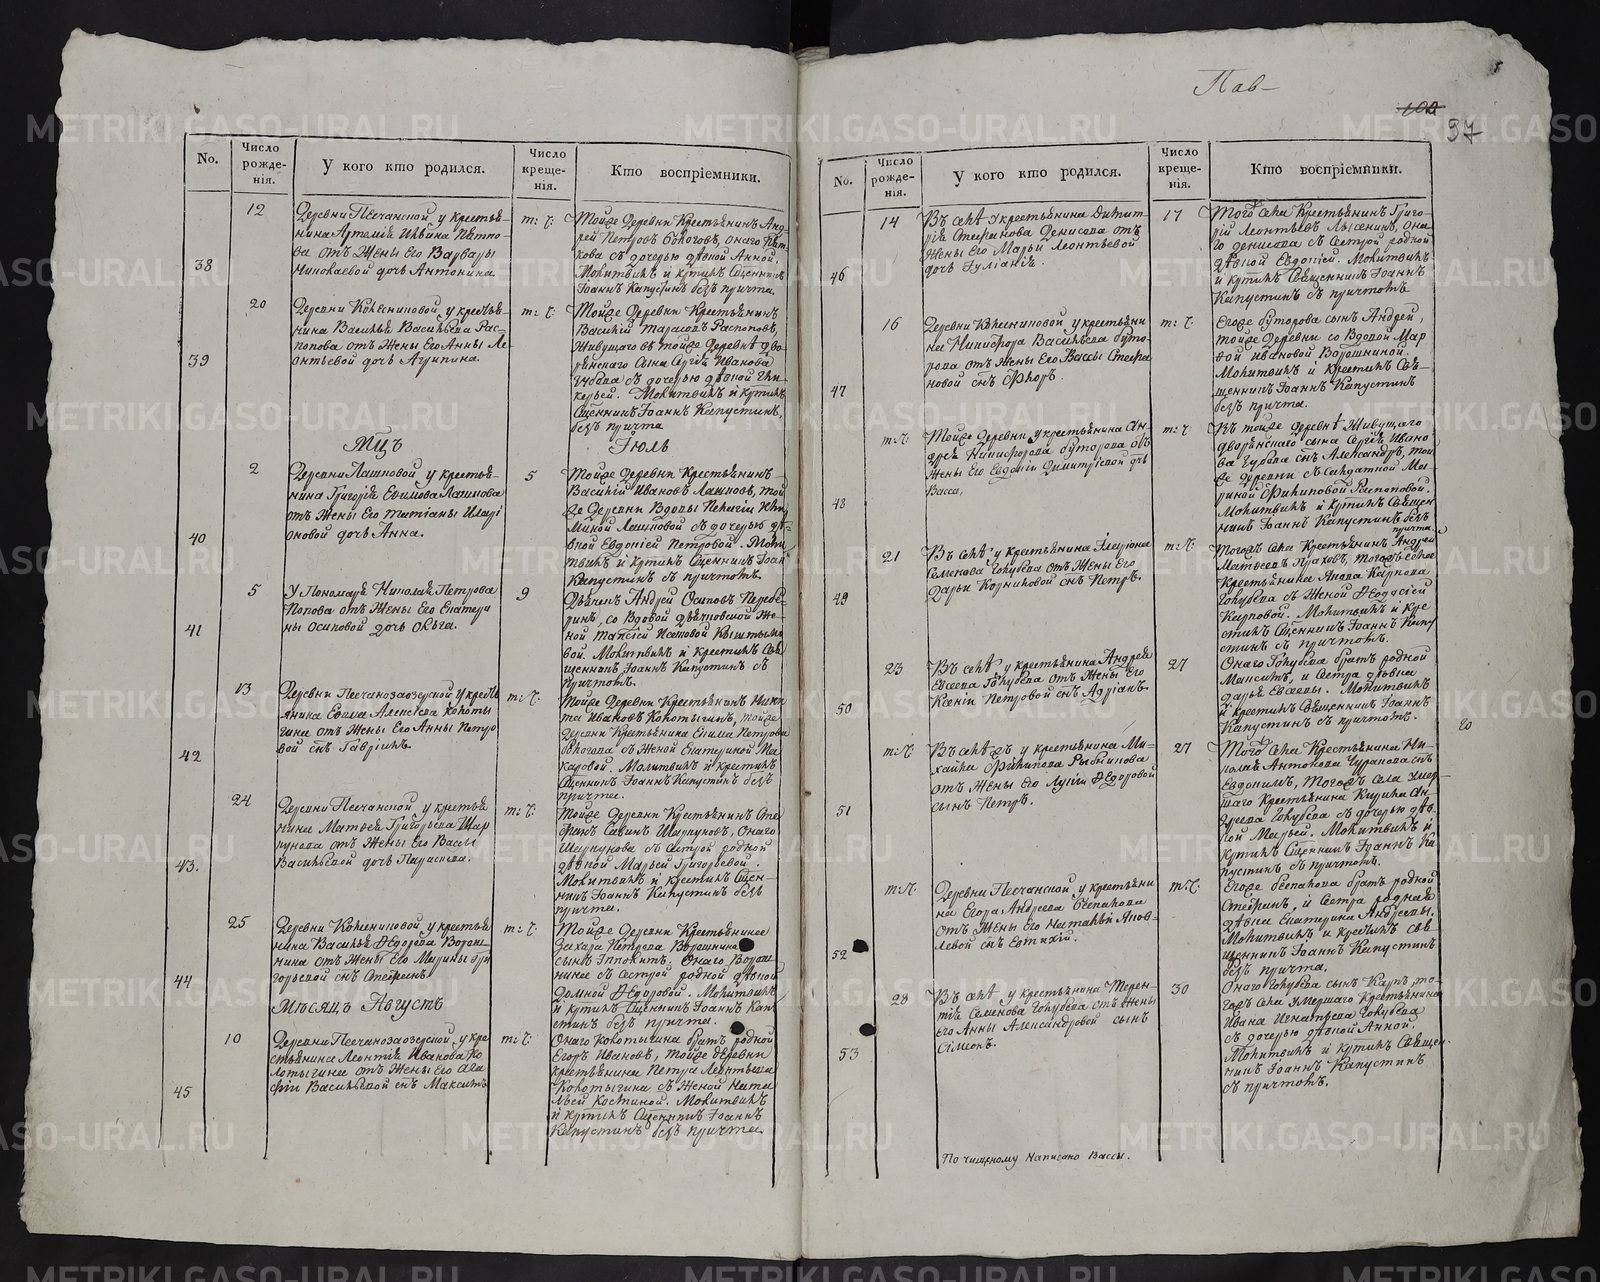 Пав-
100
97
No.
Число рожде-нія.
У кого кто родился.
Число креще-нія.
Кто воспріемники.
38
12
Деревни Песчанской у крестья-
нина Артемія
отъ жены его Варвары
Николаевой дочь Антонина.
т: ч:
Тойже деревни крестьянинъ Анд-
рей Петровъ
съ дочерью дѣвкой Анной.
Молитвилъ и крстилъ Сщенникъ
Іоаннъ Капустинъ безъ причта.
39
20
Деревни Колесниковой, у крестья-
нина Василья Васильева Рас-
попова отъ жены его Анны Ле-
онтьевой дочь Агрипина.
т: ч:
Тойже деревни крестьянинъ
Василій Тарасовъ Распоповъ,
живущаго въ тойже деревнѣ дво-
рянскаго сына Сергія Иванова
Губева съ дочерью дѣвкой Гли-
керьей. Молитвилъ и крстилъ
Сщенникъ Іоаннъ Капустинъ,
безъ причта
Мцъ Іюль
40
2
Деревни Лашковой у крестья-
нина Григорія Евимова Лашкова
отъ жены его Татіаны Иларі
оновой дочь Анна.
5
Тойже деревни крестьянинъ
Василій Ивановъ Лашковъ, той
же деревни вдовы Пелагіи
Лашковой съ дочерью дѣ-
вкой Евдокіей Петровой. Моли
твилъ и крстилъ Сщенникъ Іоан
Капустинъ съ причтомъ.
41
5
У Пономаря Николая Петрова
Попова отъ жены его Екатери
ны Осиповой дочь Ольга.
9
Дьяченъ Андрей Осиповъ
со вдовой дьячковской же-
ной Таисіей
Молитвилъ и крестилъ Свя
щенникъ Іоаннъ Капустинъ съ
причтомъ.
42
13
Деревни Песчаноозерской у крестья
янина Евима Алексѣева Колоты
гина отъ жены его Анны Петро
вой снъ Гавріилъ.
т: ч:
Тойже деревни крестьянинъ Ники
та Ивановъ Колотыгинъ, тойже
деревни крестьянина Екима Петрова
съ женой Екатериной Ма
каровой. Молитвилъ и крестилъ
Сщенникъ Іоаннъ Капустинъ безъ
причта.
43.
24
Деревни Песчанской у крестья
нина Матвѣя Григорьева Шар
пунова отъ жены его Вассы
Васильевой дочь Параскева.
т: ч:
Тойже деревни крестьянинъ Сте
фанъ Савинъ Шарпуновъ, онаго
Шарпунова съ сестрой родной
дѣвкой Марьей Григорьевой.
Молитвилъ и крестилъ Сщен-
никъ Іоаннъ Капустинъ безъ
причта.
44
25
Деревни Колесниковой, у крестья
нина Василья Ѳедорова Ворош-
нина отъ жены его Марины Гри
горьевой снъ Стефанъ.
т: ч:
Тойже деревни крестьянина
Захара Петрова Ворошнина
сынъ Іпполитъ. Онаго Ворош
нина съ сестрой родной дѣвкой
Домной Ѳедоровой. Молитвилъ
и крстилъ Сщенникъ Іоаннъ Кап
стинъ безъ причта.
Мѣсяцъ Августъ
45
10
Деревни Песчаноозерской, у кре
стьянина Леонтія Иванова Ко
лотыгина отъ жены его Ага
фіи Васильевой снъ Максимъ
т: ч:
Онаго Колотыгина братъ родной
Егоръ Ивановъ, тойже деревни
крестьянина Петра Леонтьева
Колотыгина съ женой Ната
льей Костиной. Молитвилъ
и крстилъ Сщенникъ Іоаннъ
Капустинъ безъ причта.
No.
Число рожде-нія.
У кого кто родился.
Число креще-нія.
Кто воспріемники.
46
14
Въ селѣ у крестьянина Димит-
рія Стефанова Денисова отъ
жены его Марьи Леонтьевой
дочь Іуліанія.
17
Тогоже села крестьянинъ Григо-
рій Леонтьевъ Лысенинъ, она-
го Денисова съ сестрой родной
дѣвкой Евдокіей. Молитвилъ
и крстилъ Священникъ Іоаннъ
Капустинъ съ причтомъ.
47
16
Деревни Колесниковой у крестьяни
на Никифора Васильева Буто-
рова отъ жены его Вассы Стефа
новой снъ Флоръ.
т: ч:
Егора Буторова сынъ Андрей,
тойже деревни со вдовой Мар
ѳой Ивановой Ворошниной.
Молитвилъ и крестилъ Свя-
щенникъ Іоаннъ Капустинъ
безъ причта.
48
т: ч.
Тойже деревни у крестьянина Ан-
дрея Никифорова Буторова отъ
жены его Евдокіи Димитріевой дчь
Васса,
т: ч
Въ тойже деревнѣ живущаго
дворянскаго сына Сергія Ивано
ва Губева снъ Александръ, той
же деревни съ салдаткой Ма-
риной Филиповой Распоповой.
Молитвилъ и крстилъ Священ
никъ Іоаннъ Капустинъ безъ
причта.
49
21
Въ селѣ у крестьянина Иларіона
Семенова Голубева отъ жены его
Дарьи Корниловой снъ Петръ.
т: ч:
Тогожъ села крестьянинъ Андрей
Матвѣевъ тогожъ села
крестьянина Іякова Карпова
Голубева съ женой Ѳеодосіей
Карповой. Молитвилъ и кре
стилъ Сщенникъ Іоаннъ Капу
стинъ съ причтомъ.
50
23
Въ селѣ у крестьянина Андрея
Евсеева Голубева отъ жены его
Ксеніи Петровой снъ Адріанъ.
27
Онаго Голубева братъ родной
Максимъ, и сестра дѣвка
Дарья Евсеевы. Молитвилъ
и крестилъ Священникъ Іоаннъ
Капустинъ съ причтомъ.
51
т: ч.
Въ селѣ у крестьянина Ми-
хайла Филипова Рыбникова
отъ жены его Лукіи Ѳедоровой
сынъ Петръ.
27
Тогоже села крестьянина Ни-
колая Антонова Чуракова снъ
Евдокимъ, тогожъ села умер-
шаго крестьянина Кирила Ан-
дреева Голубева съ дочерью дѣв-
кой Марьей. Молитвилъ и
крстилъ Сщенникъ Іоаннъ Ка
пустинъ съ причтомъ.
52
т: ч.
Деревни Песчанской у крестьяни
на Егора Андреева Беспалова
отъ жены его Натальи Яков-
левой снъ Евтихій.
т: ч:
Егора Беспалова братъ родной
Стефанъ, и сестра родная
дѣвка Екатерина Андреевы.
Молитвилъ и крстилъ Свя
щенникъ Іоаннъ Капустинъ
безъ причта.
53
28
Въ селѣ у крестьянина Терен-
тія Семенова Голубева отъ жены
его Анны Александровой сынъ
Сімеонъ.
30
Онаго Голубева сынъ Карпъ то-
гожъ села умершаго крестьянина
Ивана Игнатьева Голубева
съ дочерью дѣвкой Анной.
Молитвилъ и крстилъ Священ
никъ Іоаннъ Капустинъ
съ причтомъ.
По чищеному написано Вассы.
METRIKI.GASO-URAL.RU